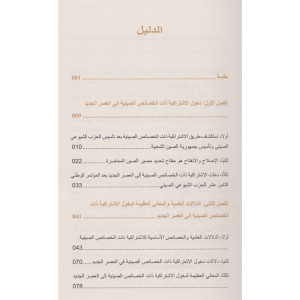 الدليل
مقدمة
001
الفصل الأول: دخول الاشتراكية ذات الخصائص الصينية إلى العصر الجديد
009
أولا، استكشاف طريق الاشتراكية ذات الخصائص الصينية بعد تأسيس الحزب الشيوعي
الصيني وتأسيس جمهورية الصين الشعبية 010
ثانيًا، الإصلاح والانفتاح هو مفتاح تحديد مصير الصين المعاصرة 022
ثالثًا، دخلت الاشتراكية ذات الخصائص الصينية إلى العصر الجديد بعد المؤتمر الوطني
الثامن عشر للحزب الشيوعي الصيني 033
الفصل الثاني: الدلالات العلمية والمعاني العظيمة لدخول الاشتراكية ذات
الخصائص الصينية إلى العصر الجديد 041
أولا، الدلالات العلمية والخصائص الأساسية للاشتراكية ذات الخصائص الصينية
043
ثانيًا، دلالات العصر الجديد في الاشتراكية ذات الخصائص الصينية في العصر الجديد 070
ثالثًا، المعاني العظيمة لدخول الاشتراكية ذات الخصائص الصينية إلى العصر الجديد
078